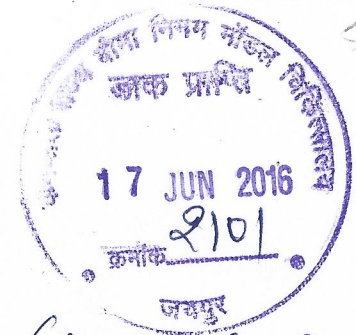 राज्य बीमा निगम मॉडल चिकित्सालय
डाक प्राप्ति
17 JUN 2016
क्रमांक 2101
जयपुर